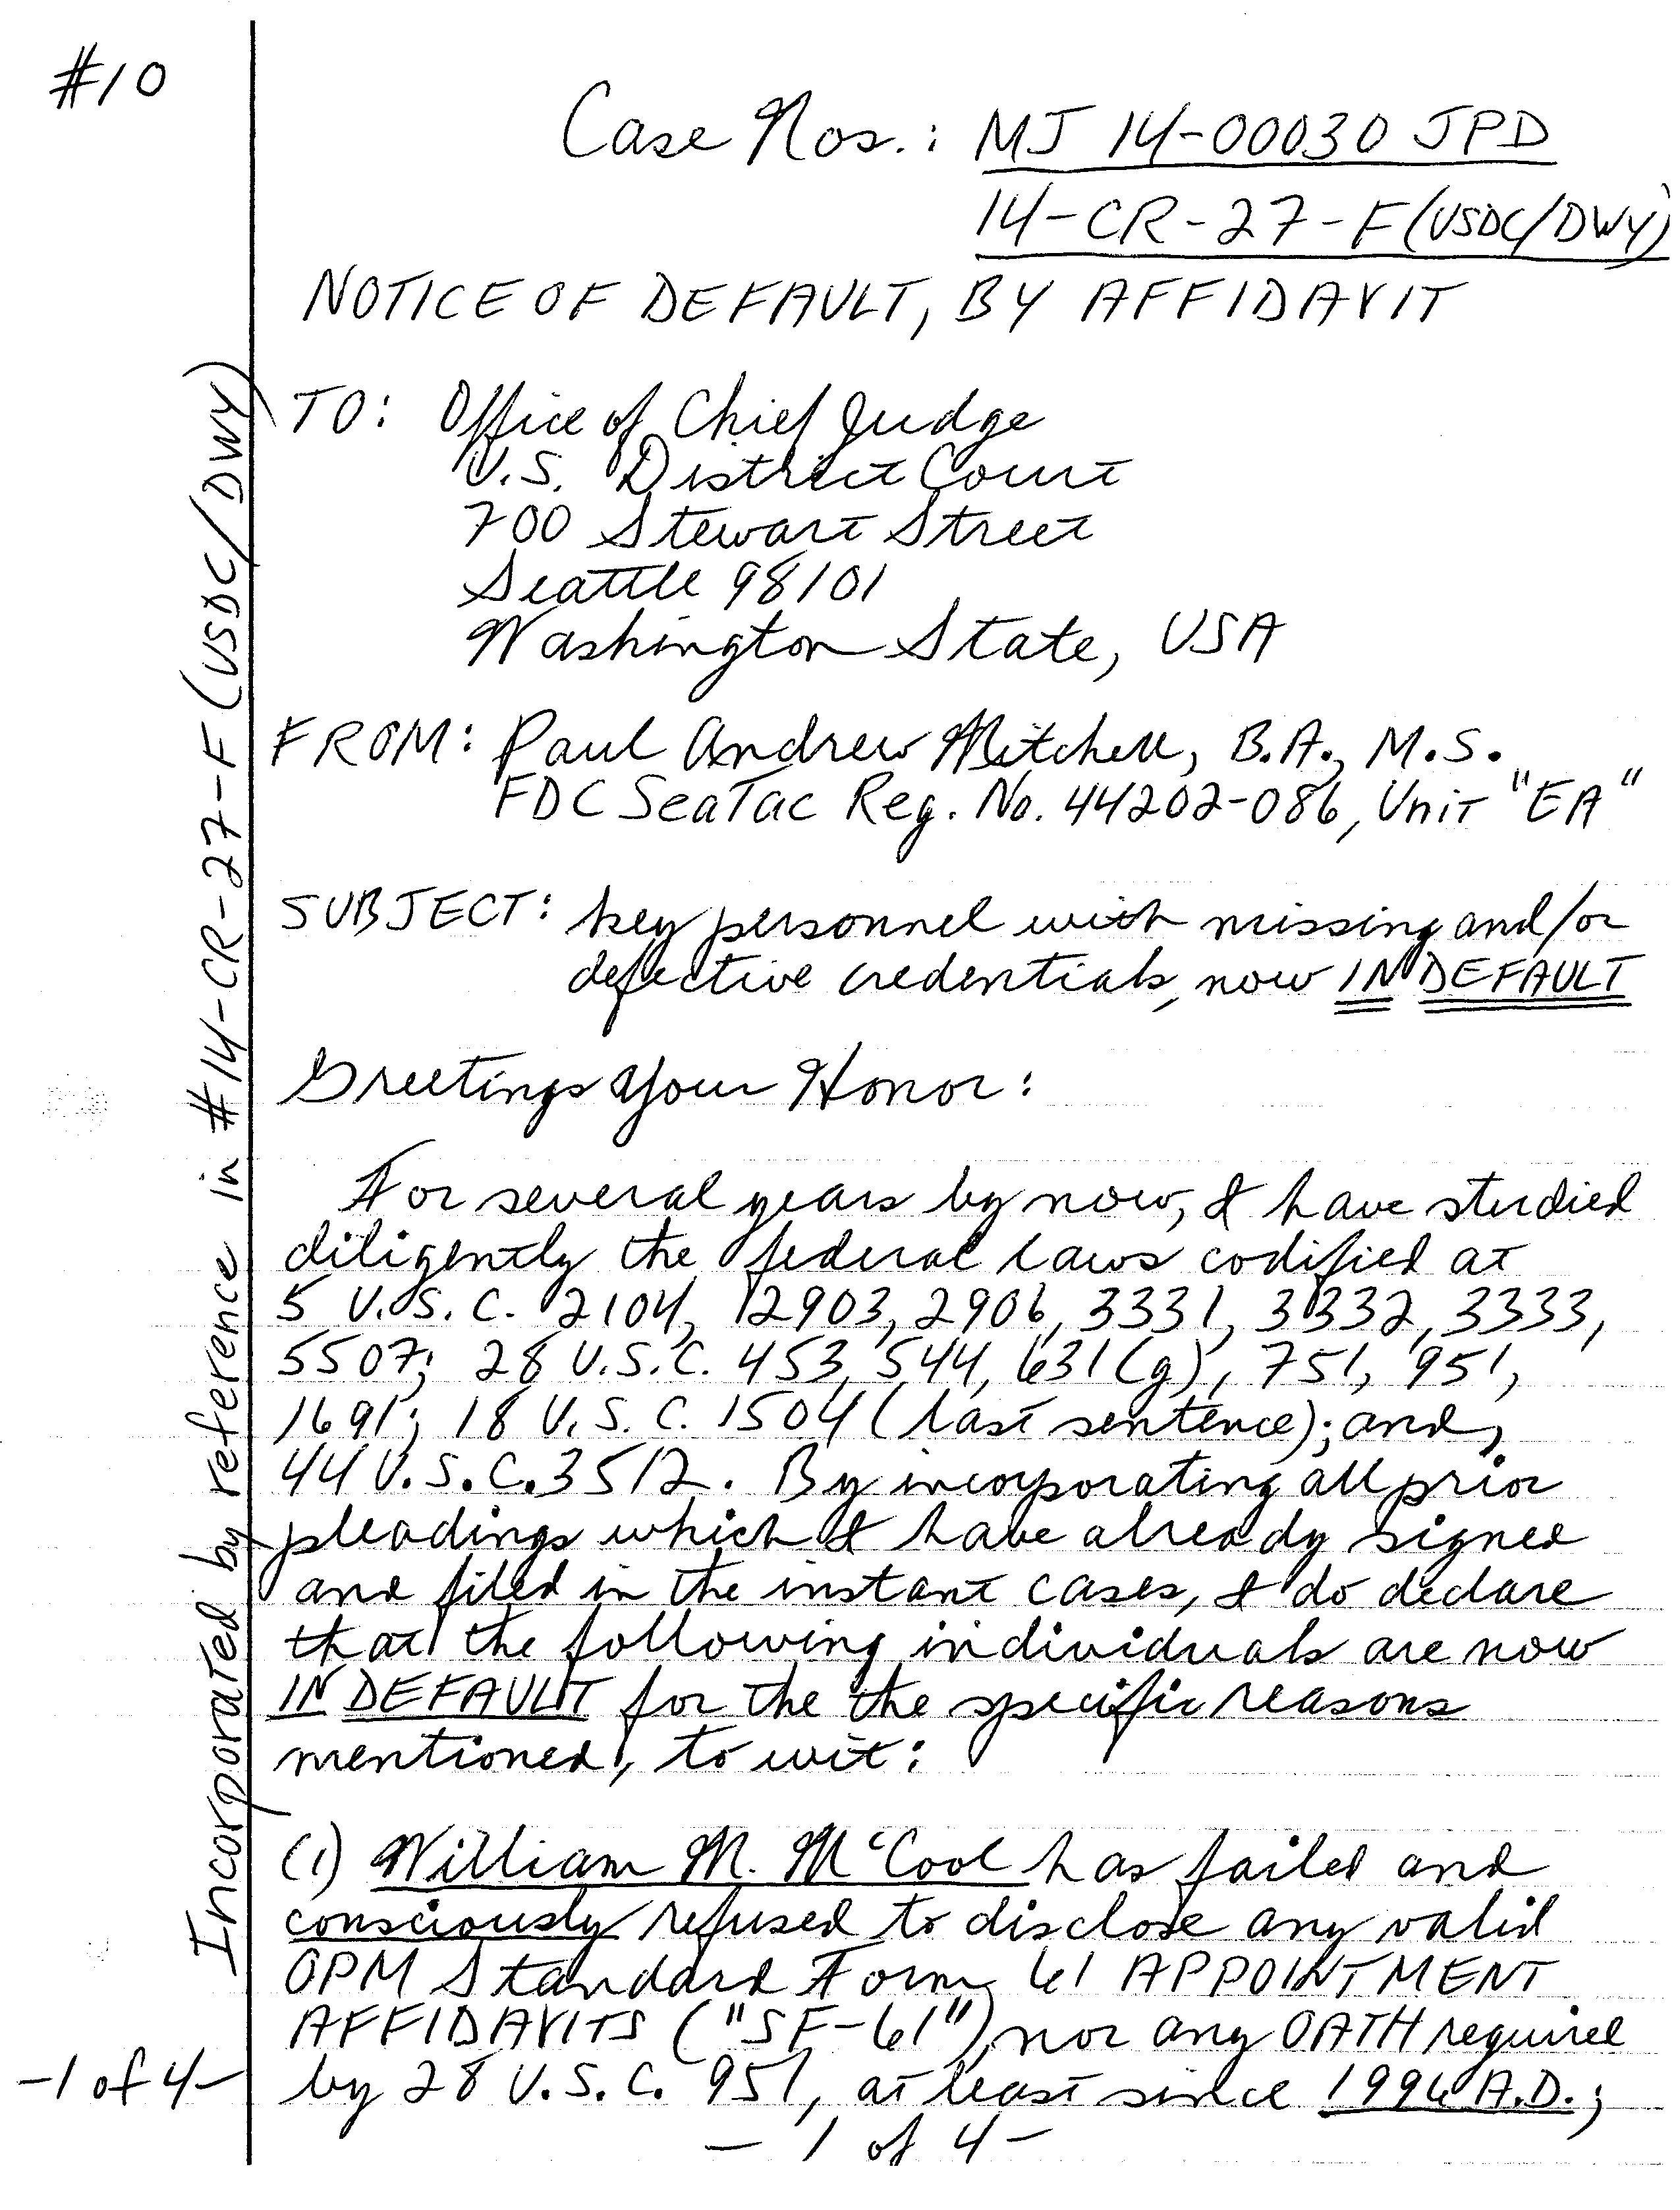 #10
Case Nos.: MJ 14-00030 JPD
14-CR-27-F (USDC/DWY)
NOTICE OF DEFAULT, BY AFFIDAVIT
TO: Office of Chief Judge
U.S. District Court
700 Stewart Street
Seattle 98101
Washington State, USA
FROM: Paul Andrew Mitchell, B.A., M.S.
FDC SeaTac Reg. No. 44202-086, Unit "EA"
SUBJECT: key personnel with missing and/or
defective credentials, now IN DEFAULT
Greetings Your Honor:
For several years by now, I have studied
diligently the federal laws codified at
5 U.S.C. 2104, 2903, 2906, 3331, 3332, 3333,
5507; 28 U.S.C. 453, 544, 631(g), 751, 951,
1691; 18 U.S.C. 1504 (last sentence); and,
44 U.S.C. 3512. By incorporating all prior
pleadings which I have already signed
and filed in the instant cases, I do declare
that the following individuals are now
IN DEFAULT for the the specific reasons
mentioned, to wit:
(1) William M. McCool has failed and
consciously refused to disclose any valid
OPM Standard Form 61 APPOINTMENT
AFFIDAVITS ("SF-61") nor any OATH required
by 28 U.S.C. 951, at least since 1996 A.D.;
- 1 of 4 -
Incorporated by reference in #14-CR-27-F (USDC/DWY)
-1 of 4-